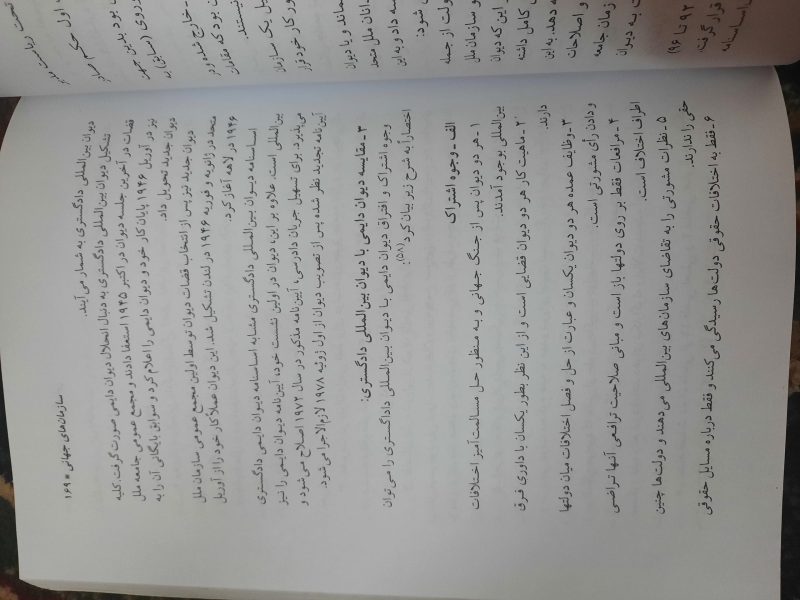 سازمان‌های جهانی ■ ۱۶۹
دیوان بین‌المللی دادگستری به شمار می‌آیند.
تشکیل دیوان بین‌المللی دادگستری به دنبال انحلال دیوان دایمی صورت گرفت. کلیه
قضات در آخرین جلسه دیوان در اکتبر ۱۹۴۵ استعفا دادند و مجمع عمومی جامعه ملل
نیز در آوریل ۱۹۴۶ پایان کار خود و دیوان دایمی را اعلام کرد و سوابق بایگانی آن را به
دیوان جدید تحویل داد.
دیوان جدید نیز پس از انتخاب قضات دیوان توسط اولین مجمع عمومی سازمان ملل
متحد در ژانویه و فوریه ۱۹۴۶ در لندن تشکیل شد. این دیوان عملاً کار خود را از آوریل
۱۹۴۶ در لاهه آغاز کرد.
اساسنامه دیوان بین‌المللی دادگستری مشابه اساسنامه دیوان دایمی دادگستری
بین‌المللی است. علاوه بر این، دیوان در اولین نشست خود، آیین‌نامه دیوان دایمی را نیز
می‌پذیرد. برای تسهیل جریان دادرسی، آیین‌نامه مذکور در سال ۱۹۷۲ اصلاح می‌شود و
آیین‌نامه تجدید نظر شده پس از تصویب دیوان از اول ژوئیه ۱۹۷۸ لازم‌الاجرا می‌شود.
۳ ـ مقایسه دیوان دایمی با دیوان بین‌المللی دادگستری:
وجوه اشتراک و افتراق دیوان دایمی با دیوان بین‌المللی داداگستری را می‌توان
اختصاراً به شرح زیر بیان کرد (۵۸):
الف ـ وجوه اشتراک
۱ ـ هر دو دیوان پس از جنگ جهانی و به منظور حل مسالمت‌آمیز اختلافات
بین‌المللی بوجود آمدند.
۲ ـ ماهیت کار هر دو دیوان قضایی است و از این نظر بطور یکسان با داوری فرق
دارند.
۳ ـ وظایف عمده هر دو دیوان یکسان و عبارت از حل و فصل اختلافات میان دولتها
و دادن رأی مشورتی است.
۴ ـ مرافعات فقط بر روی دولتها باز است و مبانی صلاحیت ترافعی آنها تراضی
اطراف اختلاف است.
۵ ـ نظرات مشورتی را به تقاضای سازمان‌های بین‌المللی می‌دهند و دولت‌ها چنین
حقی را ندارند.
۶ ـ فقط به اختلافات حقوقی دولت‌ها رسیدگی می‌کنند و فقط درباره مسایل حقوقی